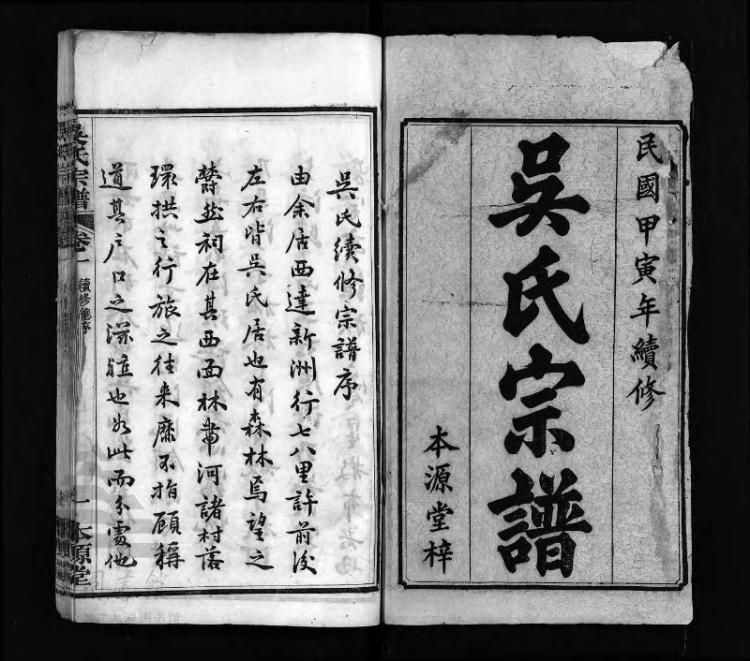 民國甲寅年續修
吳氏宗譜
本源堂梓
吳氏續修宗譜序
由余居西達新洲行七八里許前後
左右皆吳氏居也有森林焉望之
欝然祠在其西西林帶河諸村落
環拱之行旅之往來靡不指顧稱
道其戶口之深旺也如此而分處他
吳氏宗譜
卷一
續修總序
一
本源堂